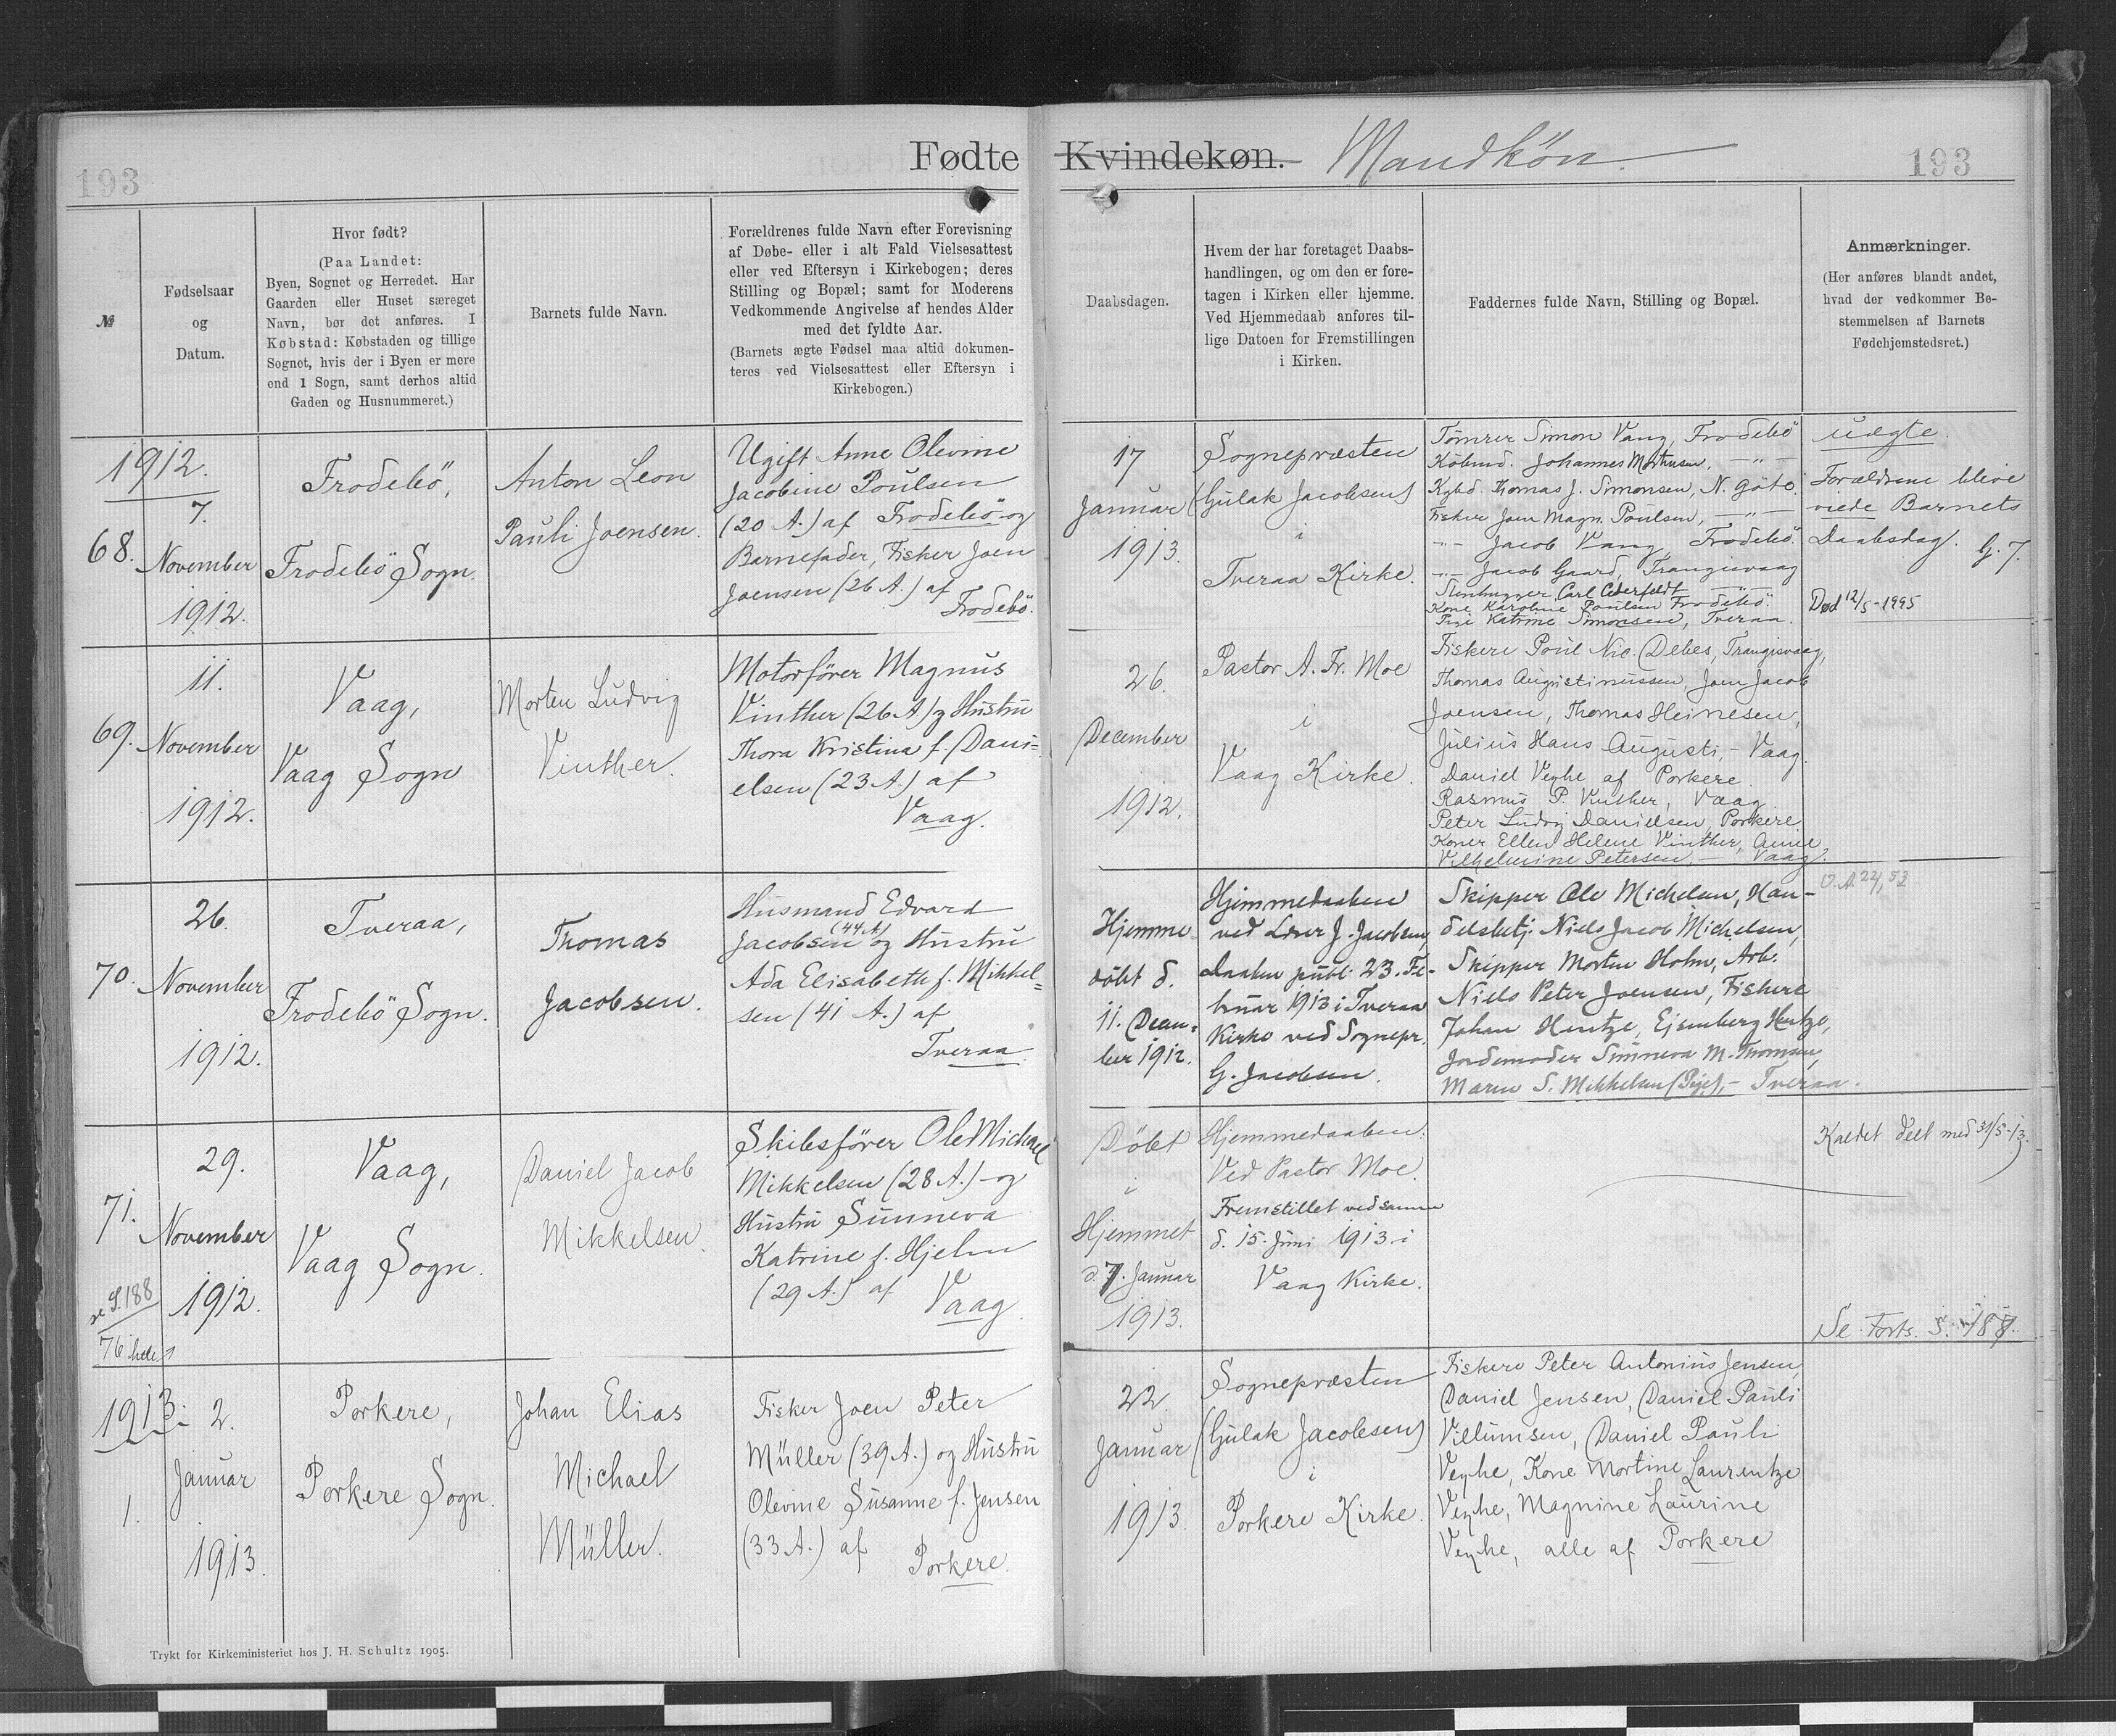 193
Fødte Kvindekøn. Mandkön
193
№
Fødselsaar
og
Datum.
Hvor født?
(Paa Landet:
Byen, Sognet og Herredet. Har
Gaarden eller Huset særeget
Navn, bør det anføres. I
Købstad: Købstaden og tillige
Sognet, hvis der i Byen er mere
end 1 Sogn, samt derhos altid
Gaden og Husnummeret.)
Barnets fulde Navn.
Forældrenes fulde Navn efter Forevisning
af Døbe- eller i alt Fald Vielsesattest
eller ved Eftersyn i Kirkebogen; deres
Stilling og Bopæl; samt for Moderens
Vedkommende Angivelse af hendes Alder
med det fyldte Aar.
(Barnets ægte Fødsel maa altid dokumen-
teres ved Vielsesattest eller Eftersyn i
Kirkebogen.)
Daabsdagen.
Hvem der har foretaget Daabs-
handlingen, og om den er fore-
tagen i Kirken eller hjemme.
Ved Hjemmedaab anføres til-
lige Datoen for Fremstillingen
i Kirken.
Faddernes fulde Navn, Stilling og Bopæl.
Anmærkninger.
(Her anføres blandt andet,
hvad der vedkommer Be-
stemmelsen af Barnets
Fødehjemstedsret.)
1912.
68.
7.
November
1912.
Frodebö,
Frodebö Sogn.
Anton Leon
Pauli Joensen.
Ugift Anne Olevine
Jacobine Poulsen
(20 A.) af Frodebö og
Barnefader, Fisker Joen
Joensen (26 A.) af
Frodebö.
17
Januar
1913.
Sognepræsten
(Gulak Jacobsen)
i
Tveraa Kirke.
Tömrer Simon Vang, Frodebö
Köbmd. Johannes Mortensen, — " —
Kgbd. Thomas J. Simonsen, N. Göte.
Fisker Joen Magn. Poulsen, — " —
— " — Jacob Vang, Frodebö.
— " — Jacob Gaard, Trangisvaag
Stenhugger Carl Cederfeldt — " —
Kone Karoline Poulsen Frodebö.
Pige Katrine Simonsen, Tveraa.
uægte.
Forældrene bleve
viede Barnets
Daabsdag. G. 7.
Død 12/5-1995
69.
11.
November
1912.
Vaag,
Vaag Sogn
Morten Ludvig
Vinther.
Motorförer Magnus
Vinther (26 A) og Hustru
Thora Kristina f. Dani=
elsen (23 A.) af
Vaag.
26.
December
1912.
Pastor A. Fr. Moe
i
Vaag Kirke.
Fiskere Poul Nic. Debes, Trangisvaag,
Thomas Augustinussen, Joen Jacob
Joensen, Thomas Heinesen,
Julius Hans Augusti, - Vaag.
Daniel Veyhe af Porkere.
Rasmus P. Vinther, Vaag.
Peter Ludvig Danielsen, Porkere
Koner Ellen Helene Vinther, Anne
Vilhelmine Petersen, — Vaag.
70.
26.
November
1912.
Tveraa,
Frodebö Sogn.
Thomas
Jacobsen.
Husmand Edvard
Jacobsen (44 A) og Hustru
Ada Elisabeth f. Mikkel=
sen (41 A.) af
Tveraa
Hjemme
döbt d.
11. Decem-
ber 1912.
Hjemmedaaben
ved Lærer J. Jacobsen,
Daaben publ. 23. Fe-
bruar 1913 i Tveraa
Kirke ved Sognepr.
G. Jacobsen.
Skipper Ole Michelsen, Han-
delsbetj. Niels Jacob Michelsen,
Skipper Morten Holm, Arb.
Niels Peter Joensen, Fiskere
Johan Hentze, Ejemberg Hentze,
Jordemoder Sunneva M. Thomsen,
Maren S. Mikkelsen (Pige), - Tveraa.
D. A. 22/, 53
71.
se S. 188
76 heler
29.
November
1912.
Vaag,
Vaag Sogn.
Daniel Jacob
Mikkelsen.
Skibsförer Ole Michael
Mikkelsen (28 A.) og
Hustru Sunneva
Katrine f. Hjelm
(29 A.) af Vaag.
Döbt
i
Hjemmet
d. 7. Januar
1913.
Hjemmedaaben:
Ved Pastor Moe.
Fremstillet ved samme
d. 15. Juni 1913 i
Vaag Kirke.
Kaldet delt med 31/5-13.
Se Forts. S. 187.
1913.
1.
2.
Januar
1913.
Porkere,
Porkere Sogn.
Johan Elias
Michael
Müller.
Fisker Joen Peter
Müller (39 A.) og Hustru
Olevine Susanne f. Jensen
(33 A.) af Porkere.
22.
Januar
1913
Sognepræsten
(Gulak Jacobsen)
i
Porkere Kirke.
Fiskere Peter Antonius Jensen,
Daniel Jensen, Daniel Pauli
Villumsen, Daniel Pauli
Veyhe, Kone Mortine Laurentze
Veyhe, Magnine Laurine
Veyhe, alle af Porkere
Trykt for Kirkeministeriet hos J. H. Schultz 1905.